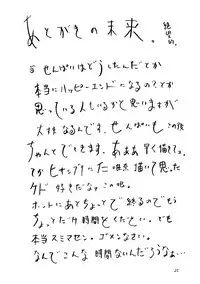 あとがきの未来。絶望的。
今 せんぱいはどうしたんだとか
本当にハッピーエンドになるの?とか
思っている人もいるかと思いますが
大丈夫なるんです。せんぱいもこの後
ちゃんとでていきます。あぁぁ早く描きてぇ。
てかヒサシブリに 描いて思った
ケド 好きだなァ この娘。
ホントにあとちょっとで終るのでもう
ちょっとだけ時間をください。でも
本当スミマセン・ゴメンなさい。
なんでこんな時間ないんだろうなぁ…